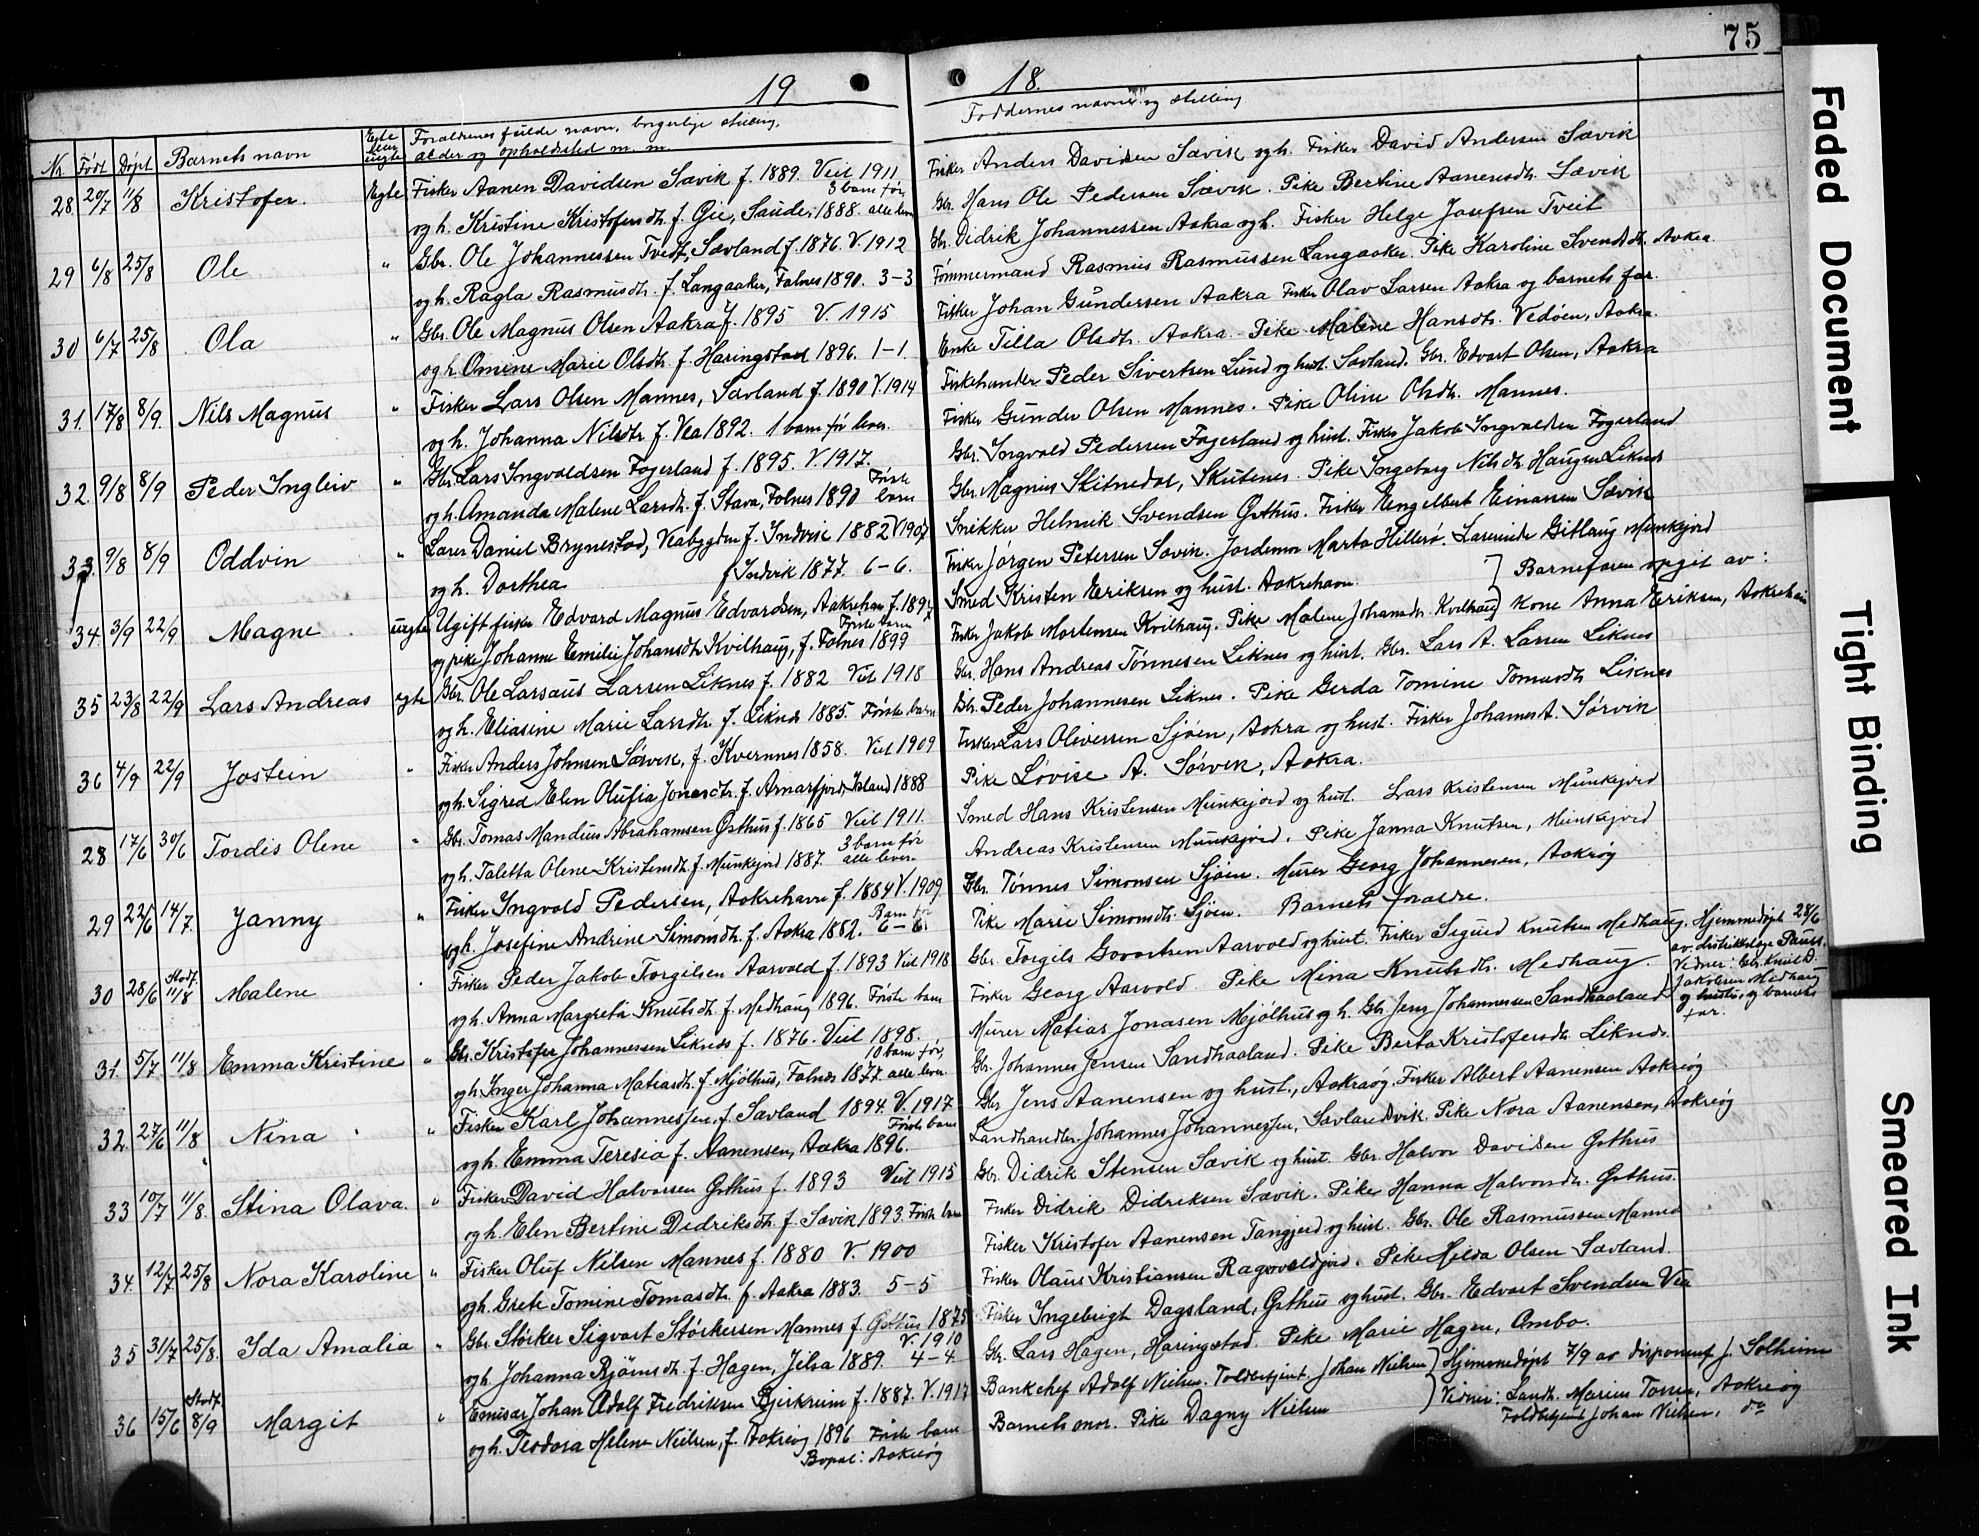 75
19 18.
Nr. Født Døpt Barnets navn Egte eller uegte Forældrenes fulde navn, borgerlige stilling,
alder og opholdssted m. m.
Faddernes navne og stilling
28. 20/7 11/8 Kristofer. Egte Fisker Aanen Davidsen Sævik f. 1889. Viet 1911 3 barn før,
og h. Kristine Kristofersdtr. f. Gie, Saude, 1888. alle lever
Fisker Anders Davidsen Sævik og h. Fisker David Andersen Sævik
Gbr. Hans Ole Pedersen Sævik. Pike Bertine Aanensdtr. Sævik
29 6/8 25/8 Ole " Gbr. Ole Johannessen Tveit, Sævland f. 1876. V. 1912
og h. Ragla Rasmusdtr. f. Langaaker, Falnes 1890. 3-3
Gbr. Didrik Johannessen Aakra og h. Fisker Helge Josefsen Tveit
Tømmermand Rasmus Rasmussen Langaaker. Pike Karoline Svendsdtr. Aakra.
30 6/7 25/8 Ola " Gbr. Ole Magnus Olsen Aakra f. 1895 V. 1915
og h. Omine Marie Olsdtr. f. Haringstad 1896. 1-1
Fisker Johan Gundersen Aakra Fisker Olav Larsen Aakra og barnets far.
Enke Tilla Olsdtr. Aakra. Pike Malene Hansdtr. Vedøen, Aakra.
31. 17/8 8/9. Nils Magnus " Fisker Lars Olsen Mannes, Sævland f. 1890 V. 1914
og h. Johanna Nilsdtr. f. Vea 1892. 1 barn før lever.
Fiskehandler Peder Sivertsen Lund og hust. Sævland. Gbr. Edvart Olsen, Aakra
Fisker Gunder Olsen Mannes. Pike Oline Olsdtr. Mannes.
32. 9/8 8/9 Peder Ingleiv " Gbr. Lars Ingvaldsen Fagerland f. 1895. V. 1917.
og h. Amanda Malene Larsdtr. f. Stava, Falnes 1890 Første barn
Gbr. Ingvald Pedersen Fagerland og hust. Fisker Jakob Ingvaldsen Fagerland
Gbr. Magnus Skitnedal, Skutenes. Pike Ingeborg Nilsdtr. Haugen Liknes
33. 9/8 8/9 Oddvin " Lærer Daniel Brynestad, Veabygden f. Indvik 1882 V. 1907
og h. Dorthea f. Indvik 1877. 6-6.
Snikker Helmik Svendsen Østhus. Fisker Engelbert Einarsen Sævik
Fisker Jørgen Petersen Sævik. Jordemor Marta Hillerø. Lærerinde Gitlaug Munkejord
34. 3/9 22/9 Magne. uegte Ugift fisker Edvard Magnus Edvardsen, Aakrehavn f. 1897
og pike Johanne Emilie Johansdtr. Kvilhaug, f. Falnes 1899 Første barn
Smed Kristen Eriksen og hust. Aakrehavn.
Fisker Jakob Mortensen Kvilhaug. Pike Malene Johansdtr. Kvilhaug
Barnefaren opgit av:
Kone Anna Eriksen, Aakrehavn
35 23/8 22/9 Lars Andreas egte Gbr. Ole Larsaus Larsen Liknes f. 1882 Viet 1918
og h. Eliasine Marie Larsdtr. f. Liknes 1885. Første barn
Gbr. Hans Andreas Tønnesen Liknes og hust. Gbr. Lars A. Larsen Liknes
Gbr. Peder Johannesen Liknes. Pike Gerda Tomine Tomasdtr. Liknes
36 4/9 22/9 Jostein " Fisker Anders Johnsen Sørvik, f. Kvernnes 1858. Viet 1909
og h. Sigred Elen Olufia Jonasdtr. f. Arnarfjord, Island 1888
Fisker Lars Oliversen Sjøen, Aakra og hust. Fisker Johannes A. Sørvik
Pike Lovise A. Sørvik, Aakra.
28 17/6 30/6 Tordis Olene " Gbr. Tomas Mandius Abrahamsen Østhus f. 1865 Viet 1911.
og h. Taletta Olene Kristensdtr. f. Munkejord 1887. 3 barn før alle lever.
Smed Hans Kristensen Munkejord og hust. Lars Kristensen Munkejord
Andreas Kristensen Munkejord. Pike Janna Knutsen, Munkejord
29 22/6 14/7. Janny " Fisker Ingvald Pedersen, Aakrehavn f. 1884 V. 1909.
og h. Josefine Andrine Simonsdtr. f. Aakra 1882. Barn før 6-6
Gbr. Tønnes Simonsen Sjøen. Murer Georg Johannesen, Aakrøy
Pike Marie Simonsdtr. Sjøen. Barnets foraldre.
30 28/6 Stadf. 11/8 Malene Fisker Peder Jakob Torgilsen Aarvold f. 1893 Viet 1918
og h. Anna Margreta Knutsdtr. f. Medhaug 1896. Første barn
Gbr. Torgils Aarvold og hust. Fisker Sigurd Knutsen Medhaug.
Fisker Georg Aarvold. Pike Mina Knutsdtr. Medhaug.
Hjemmedøpt 28/6
av distriktslæge Pauss.
Vidner: Gbr. Knut D.
Jakobsen Medhaug
og hustru, og barnets
far.
31. 5/7 11/8 Emma Kristine " Gbr. Kristofer Johannessen Liknes f. 1876. Viet 1898.
og h. Inger Johanna Matiasdtr. f. Mjølhus, Falnes 1877. 10 barn før, alle lever
Murer Matias Jonasen Mjølhus og h. Gbr. Jens Johannessen Sandhaaland
Gbr. Johannes Jensen Sandhaaland. Pike Berta Kristofersdtr. Liknes.
32. 27/6 11/8 Nina " Fisker Karl Johannessen, f. Sævland 1894. V. 1917
og h. Emma Teresia f. Aanensen, Aakra 1896. Første barn
Gbr. Jens Aanensen og hust., Aakraøy. Fisker Albert Aanensen Aakrøy
Landhandler Johannes Johannessen, Sævlandvik. Pike Nora Aanensen, Aakrøy
33 10/7 11/8. Stina Olava. " Fisker David Halvorsen Østhus f. 1893 Viet 1915
og h. Elen Bertine Didriksdtr. f. Sævik 1893. Første barn
Gbr. Didrik Stensen Sævik og hust. Gbr. Halvor Davidsen Østhus
Fisker Didrik Didriksen Sævik. Pike Hanna Halvorsdtr. Østhus.
34. 12/7 25/8 Nora Karoline " Fisker Oluf Nilsen Mannes f. 1880 V. 1900
og h. Grete Tomine Tomasdtr. f. Aakra 1883. 5-5
Fisker Kristofer Aanensen Tangjerd og hust. Gbr. Ole Rasmussen Mannes
Fisker Olaus Kristiansen Ragnvaldjord. Pike Hilda Olsen Sævland.
35 31/7 25/8. Ida Amalia " Gbr. Størker Sigvart Størkersen Mannes f. Østhus 1875 V. 1910
og h. Johanna Bjørnsdtr. f. Hagen, Jelsa 1889. 4-4.
Fisker Ingebrigt Dagsland, Østhus og hust. Gbr. Edvart Svendsen Vea
Gbr. Lars Hagen, Haringstad. Pike Marie Hagen, Ombo.
36 15/6 Stadf. 8/9 Margit " Emissær Johan Adolf Fredriksen Bjerkreim f. 1887. V. 1917
og h. Teodora Helene Nielsen, f. Aakrøy 1896 Første barn
Bopæl: Aakrøy
Bankchef Adolf Nielsen. Toldbetjent Johan Nielsen
Barnets mor. Pike Dagny Nielsen
Hjemmedøpt 7/9 av disponent J. Solheim
Vidner: Landh. Marius Tones, Aakrøy
Toldbetjent Johan Nielsen, do
Faded Document
Tight Binding
Smeared Ink